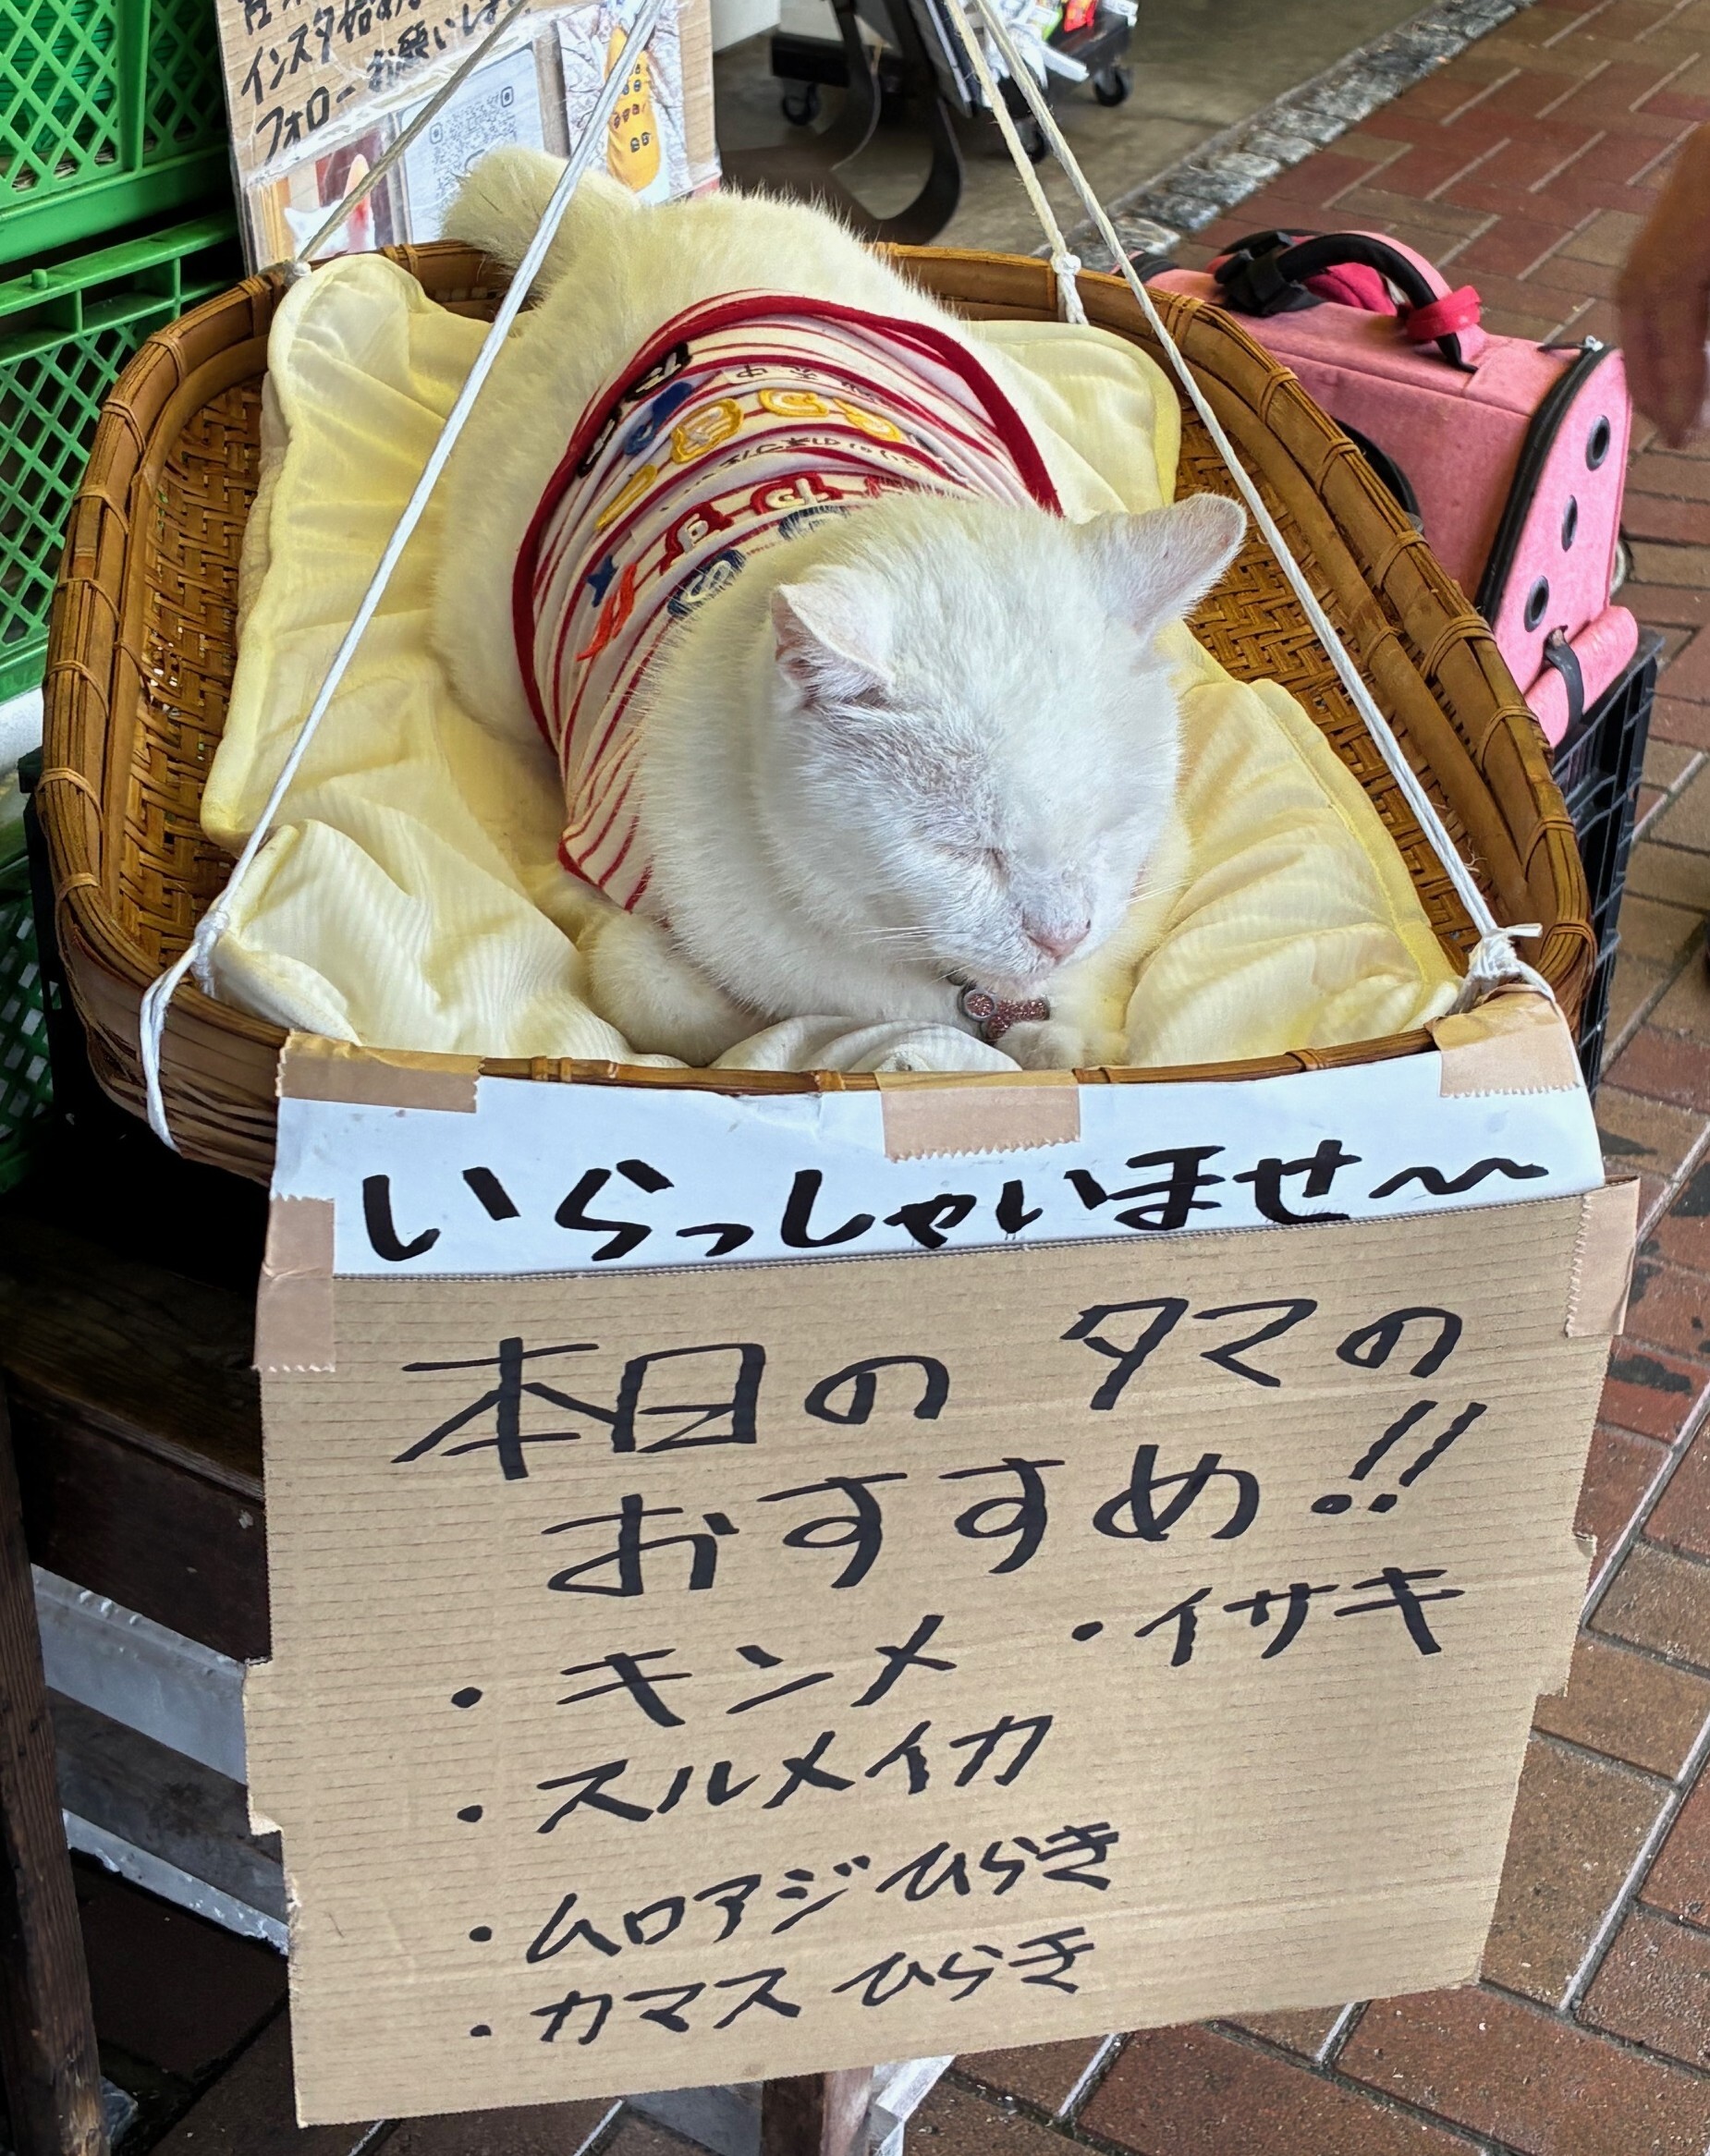 インスタ始め
フォローお願いしま
いらっしゃいませ〜
本日の タマの
おすすめ!!
・キンメ ・イサキ
・スルメイカ
・ムロアジひらき
・カマスひらき